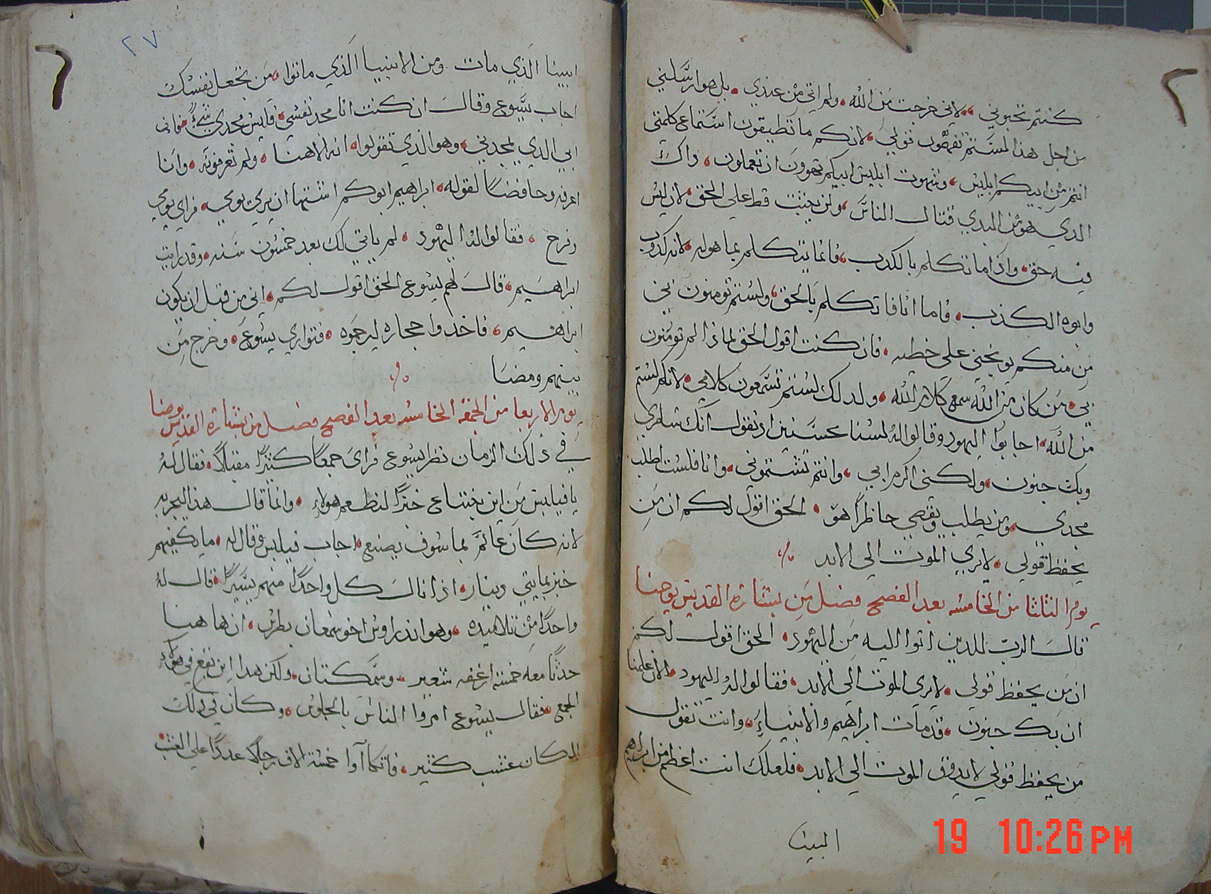 كنتم تحبوني لاني خرجت من الله ولم اتي من عندي بل هو ارسلني
من اجل هذا لستم تفهمون قولي لانكم ما تطيقون استماع كلمتي
انتم من ابيكم ابليس وشهوت ابليس ابيكم تهوون ان تعملون وداك
الدي هو من البدي قتال الناس ولن يثبت قط على الحق لان ليس
فيه حق واذا ما تكلم بالكدب فانما يتكلم بما هو له لانه كدوب
وابوه الكذب فاما انا فاتكلم بالحق ولستم تومنون بي
من منكم يوبخني على خطيه فان كنت اقول الحق لماذا لم تومنون
بي من كان من الله سمع كلام الله ولدلك لستم تسمعون كلامي لانكم لستم
من الله اجابوا اليهود وقالوا له لسنا محسنين اد نقول انك سامري
وبك جنون ولكني اكرم ابي وانتم تشتموني وانا فلست اطلب
مجدي من يطلب ويقضي حاظرًا هو الحق اقول لكم ان من
يحفظ قولي لا يري الموت الي الابد
يوم الثلاثا من الخامسه بعد الفصح فصل من بشارة القديس يوحنا
قال الرب للدين اتوا اليه من اليهود الحق اقول لكم
ان من يحفظ قولي لا يري الموت الي الابد فقالوا له اليهود الان علمنا
ان بك جنون قد مات ابراهيم والانبياء وانت تقول
من يحفظ قولي لا يدوق الموت الي الابد فلعلك انت اعظم من ابراهيم
ابينا
٢٧
ابينا الذي مات ومن الانبيا الذي ماتوا من تجعل نفسك
اجاب يسوع وقال ان كنت انا امجد نفسي فليس مجدي شيء فاني
ابي الدي يمجدني وهو الذي تقولوا انه الاهنا ولم تعرفونه وانا
اعرفه وحافضًا لقوله ابراهيم ابوكم اشتها ان يري يومي فراي يومي
وفرح فقالوا له اليهود لم ياتي لك بعد خمسون سنه وقد رايت
ابراهيم قال لهم يسوع الحق اقول لكم اني من قبل ان يكون
ابراهيم فاخدوا حجاره ليرجموه فتواري يسوع وخرج من
بينهم ومضا
يوم الاربعا من الجمعة الخامسه بعد الفصح فصل من بشارة القديس يوحنا
في ذلك الزمان نظر يسوع فراى جمعًا كثيرًا مقبلاً فقال له
يا فيلبس من اين نبتاع خبزًا لنطعم هولاء وانما قال هدا ليجربه
لانه كان عالم بما سوف يصنع اجاب فيلبس وقال له ما يكفيهم
خبز بمايتي دينار اذا نال كل واحدًا منهم يسيرًا قال له
واحدًا من تلاميده وهو اندراوس اخو سمعان بطرس ان هاهنا
حدثًا معه خمسة ارغفه شعير وسمكتان ولكن هدا اين يقع في هولاء
الجمع فقال يسوع امروا الناس بالجلوس وكان في دلك
المكان عشب كثير فاتكاوا خمسة الاف رجلا عددًا علي العشب
19 10:26 PM